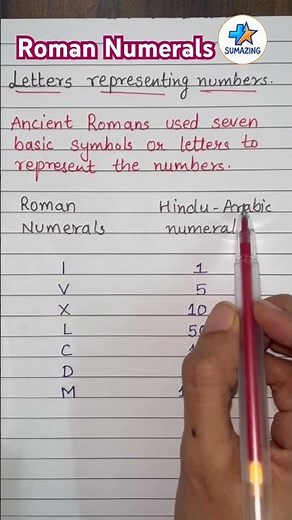 Roman Numerals
SUMAZING
Letters representing numbers.
Ancient Romans used seven
basic symbols or letters to
represent the numbers.
Roman Hindu-Arabic
Numerals numeral
I 1
V 5
X 10
L
C
D
M